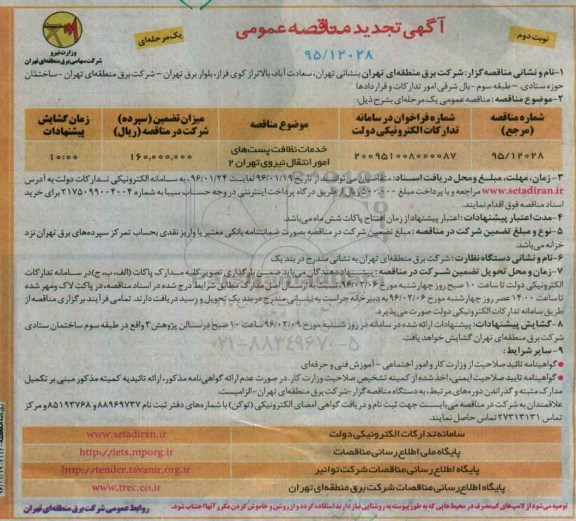 آگهی تجدید مناقصه عمومی
نوبت دوم
یک مرحله‌ای
۹۵/۱۲۰۲۸
وزارت نیرو
شرکت سهامی برق منطقه‌ای تهران
۱-نام و نشانی مناقصه گزار: شرکت برق منطقه‌ای تهران بنشانی تهران، سعادت آباد، بالاتر از کوی فراز، بلوار برق تهران – شرکت برق منطقه‌ای تهران – ساختمان
حوزه ستادی – طبقه سوم – بال شرقی امور تدارکات و قراردادها
۲-موضوع مناقصه: مناقصه عمومی یک مرحله‌ای بشرح ذیل:
شماره مناقصه (مرجع) شماره فراخوان در سامانه تدارکات الکترونیکی دولت موضوع مناقصه میزان تضمین (سپرده) شرکت در مناقصه (ریال) زمان گشایش پیشنهادات
۹۵/۱۲۰۲۸ ۲۰۰۹۵۱۰۰۸۰۰۰۰۸۷ خدمات نظافت پست‌های امور انتقال نیروی تهران ۲ ۱۶۰,۰۰۰,۰۰۰ ۱۰:۰۰
۳-زمان، مهلت، مبلغ و محل دریافت اسناد: متقاضیان می‌توانند از تاریخ ۹۶/۰۱/۱۹ لغایت ۹۶/۰۱/۲۴ به سامانه الکترونیکی تدارکات دولت به آدرس
www.setadiran.ir مراجعه و با پرداخت مبلغ ۵۰۰,۰۰۰ ریال از طریق درگاه پرداخت اینترنتی در وجه حساب سیبا به شماره ۲۱۷۵۰۹۹۰۰۴۰۰۴ برای خرید
اسناد مناقصه فوق اقدام نمایند.
۴-مدت اعتبار پیشنهادات: اعتبار پیشنهاد از زمان افتتاح پاکات شش ماه می‌باشد.
۵-نوع و مبلغ تضمین شرکت در مناقصه: مبلغ تضمین شرکت در مناقصه بصورت ضمانتنامه بانکی معتبر یا واریز نقدی بحساب تمرکز سپرده‌های برق تهران نزد
خزانه می‌باشد.
۶-نام و نشانی دستگاه نظارت: شرکت برق منطقه‌ای تهران به نشانی مندرج در بند یک
۷-زمان و محل تحویل تضمین شرکت در مناقصه: پیشنهاد دهندگان می‌باید ضمن بارگذاری تصویر کلیه مدارک پاکات (الف، ب، ج) در سامانه تدارکات
الکترونیکی دولت تا ساعت ۱۰ صبح روز چهارشنبه مورخ ۹۶/۰۲/۰۶، نسبت به ارسال اصل پاکت الف مطابق شرایط درج شده در اسناد مناقصه، در پاکت لاک ومهر شده
تا ساعت ۱۴:۰۰ عصر روز چهارشنبه مورخ ۹۶/۰۲/۰۶ به دبیرخانه حراست به نشانی مندرج در بند یک تحویل و رسید دریافت دارند. تمامی فرآیند برگزاری مناقصه از
طریق سامانه تدارکات الکترونیکی دولت صورت می‌پذیرد.
۸-گشایش پیشنهادات: پیشنهادات ارائه شده در سامانه در روز شنبه مورخ ۹۶/۰۲/۰۹ ساعت ۱۰ صبح در سالن پژوهش ۳ واقع در طبقه سوم ساختمان ستادی
شرکت برق منطقه‌ای تهران گشایش خواهد یافت.
۹-سایر شرایط:
گواهینامه تائید صلاحیت از وزارت کار و امور اجتماعی – آموزش فنی و حرفه‌ای
گواهینامه تایید صلاحیت ایمنی، اخذ شده از کمیته تشخیص صلاحیت وزارت کار. در صورت عدم ارائه گواهی‌نامه مذکور، ارائه تائیدیه کمیته مذکور مبنی بر تکمیل
مدارک مثبته و گذراندن دوره‌های مرتبط، به دستگاه مناقصه گزار- شرکت برق منطقه‌ای تهران- الزامیست.
علاقمندان به شرکت در مناقصه می‌بایست جهت ثبت نام و دریافت گواهی امضای الکترونیکی (توکن) با شماره‌های دفتر ثبت نام ۸۸۹۶۹۷۳۷ و ۸۵۱۹۳۷۶۸ و مرکز
تماس ۲۷۳۱۳۱۳۱ تماس حاصل نمایند.
سامانه تدارکات الکترونیکی دولت www.setadiran.ir
پایگاه ملی اطلاع رسانی مناقصات http://iets.mporg.ir
پایگاه اطلاع رسانی مناقصات شرکت توانیر http://tender.tavanir.org.ir
پایگاه اطلاع رسانی مناقصات شرکت برق منطقه‌ای تهران www.trec.co.ir
توصیه می‌شود از لامپ‌های کم مصرف در محیط هایی که به طور پیوسته به روشنایی نیاز دارند استفاده کرده و از روشن و خاموش کردن مکرر آنها اجتناب شود.
روابط عمومی شرکت برق منطقه‌ای تهران
۰۲۱-۸۸۳۴۹۶۷۰-۵